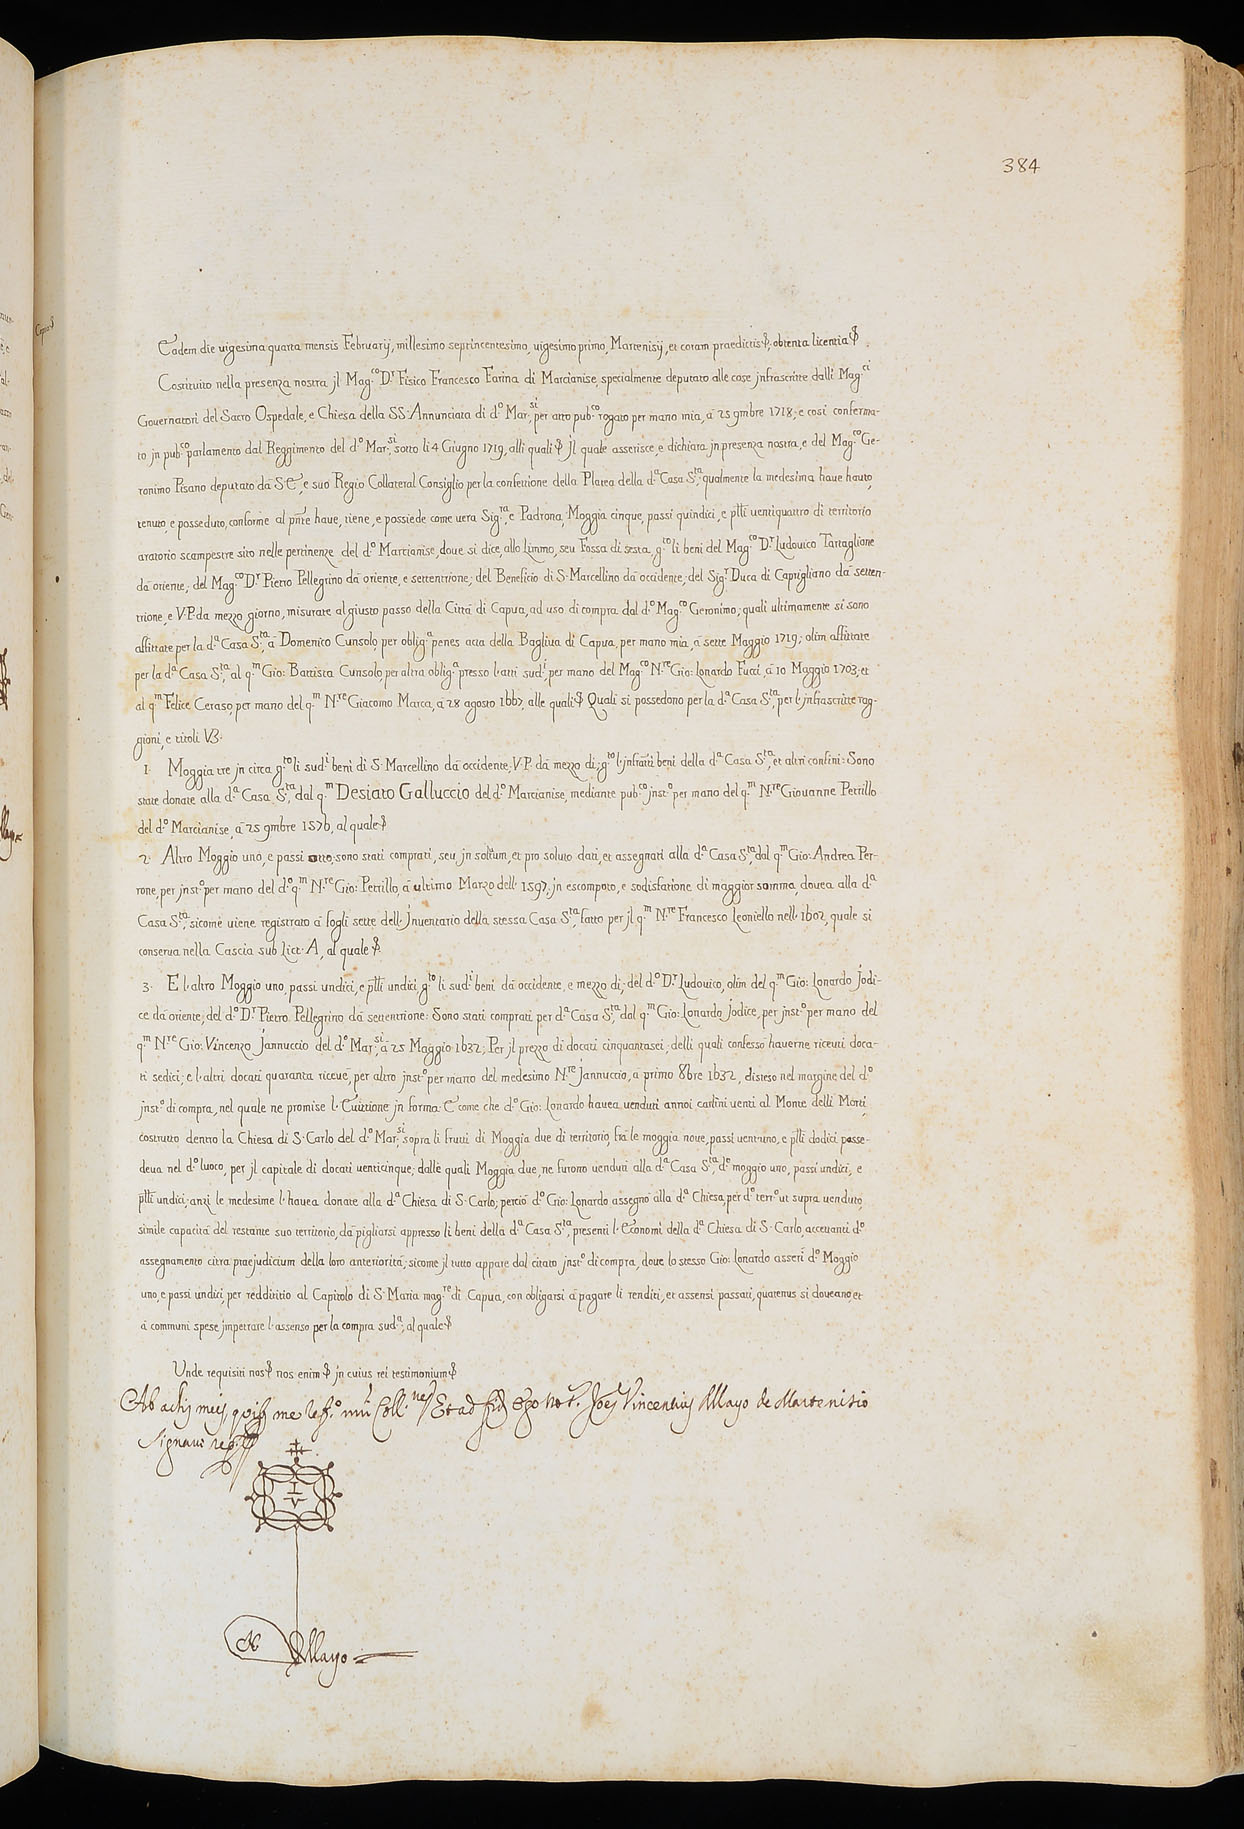 384
Copia
Eadem die vigesima quarta mensis Februarij, millesimo septincentesimo, vigesimo primo, Martenisij, et coram praedictis; obtenta licentia
Costituito nella presenza nostra jl Mag.co D.r Fisico Francesco Farina di Marcianise, specialmente deputato alle cose jnfrascritte dalli Mag.ci
Governatori del Sacro Ospedale, e Chiesa della SS. Annunciata di d.o Mar.si, per atto pub.co rogato per mano mia, à 25 9mbre 1718; e così conferma-
to jn pub.co parlamento dal Reggimento del d.o Mar.si, sotto li 4 Giugno 1719, alli quali Jl quale asserisce, e dichiara jn presenza nostra, e del Mag.co Ge-
ronimo Pisano deputato da S.E., e suo Regio Collateral Consiglio per la confettione della Platea della d.a Casa S.ta, qualmente la medesima have hauto,
tenuto, e posseduto, conforme al pn̄te have, tiene, e possiede come vera Sig.ra, e Padrona, Moggia cinque, passi quindici, e pltī ventiquattro di territorio
aratorio scampestre sito nelle pertinenze del d.o Marcianise, dove si dice, allo Limmo, seu Fossa di sesta, g.to li beni del Mag.co D.r Ludovico Tartaglione
da oriente, del Mag.co D.r Pietro Pellegrino da oriente, e settentrione; del Beneficio di S. Marcellino da occidente, del Sig.r Duca di Caprigliano da setten-
trione, e V.P. da mezzo giorno, misurate al giusto passo della Città di Capua, ad uso di compra dal d.o Mag.co Geronimo; quali ultimamente si sono
affittate per la d.a Casa S.ta, à Domenico Cunsolo, per oblig.a penes acta della Bagliva di Capua, per mano mia, à sette Maggio 1719; olim affittate
per la d.a Casa S.ta, al q.m Gio: Battista Cunsolo, per altra oblig.a presso l'atti sud.i, per mano del Mag.co N.re Gio: Lonardo Fucci, à 10 Maggio 1703, et
al q.m Felice Ceraso, per mano del q.m N.re Giacomo Marca, à 28 agosto 1667, alle quali Quali si possedono per la d.a Casa S.ta, per l'jnfrascritte rag-
gioni, e titoli V3.
1. Moggia tre jn circa g.to li sud.i beni di S. Marcellino da occidente, V.P. da mezzo di, g.to l'jnfratti beni della d.a Casa S.ta, et altri confini: Sono
state donate alla d.a Casa S.ta, dal q.m Desiato Galluccio del d.o Marcianise, mediante pub.co jnst.o per mano del q.m N.re Giovanne Petrillo
del d.o Marcianise, à 25 9mbre 1576, al quale
2. Altro Moggio uno, e passi otto, sono stati comprati, seu jn solutum, et pro soluto dati, et assegnati alla d.a Casa S.ta, dal q.m Gio: Andrea Per-
rone, per jnst.o per mano del d.o q.m N.re Gio: Petrillo, à ultimo Marzo dell' 1597, jn escomputo, e sodisfatione di maggior somma, dovea alla d.a
Casa S.ta, sicome viene registrato à fogli sette dell'Jnventario della stessa Casa S.ta, fatto per jl q.m N.re Francesco Leoniello nell' 1602, quale si
conserva nella Cascia sub Litt. A, al quale
3. E l'altro Moggio uno, passi undici, e pltī undici, g.to li sud.i beni da occidente, e mezzo di, del d.o D.r Ludovico, olim del q.m Gio: Lonardo Jodi-
ce da oriente, del d.o D.r Pietro Pellegrino da settentrione: Sono stati comprati per d.a Casa S.ta, dal q.m Gio: Lonardo Jodice, per jnst.o per mano del
q.m N.re Gio: Vincenzo Jannuccio del d.o Mar.si, à 25 Maggio 1632; Per jl prezzo di docati cinquantasei; delli quali confessò haverne ricevuti doca-
ti sedici; e l'altri docati quaranta ricevè, per altro jnst.o per mano del medesimo N.re Jannuccio, a primo 8bre 1632, disteso nel margine del d.o
jnst.o di compra, nel quale ne promise l'Evittione jn forma. E come che d.o Gio: Lonardo havea venduti annoi carlini venti al Monte delli Morti,
costrutto dentro la Chiesa di S. Carlo del d.o Mar.si, sopra li frutti di Moggia due di territorio, frà le moggia nove, passi vent'uno, e pltī dodici posse-
deva nel d.o luoco, per jl capitale di docati venticinque; dalle quali Moggia due, ne furono venduti alla d.a Casa S.ta, d.o moggio uno, passi undici, e
pltī undici; anzi le medesime l'havea donate alla d.a Chiesa di S. Carlo; perciò d.o Gio: Lonardo assegnò alla d.a Chiesa, per d.o terr.o ut supra venduto,
simile capacità del restante suo territorio, da pigliarsi appresso li beni della d.a Casa S.ta, presenti l'Economi della d.a Chiesa di S. Carlo, accettanti d.o
assegnamento citra praejudicium della loro anteriorità; sicome jl tutto appare dal citato jnst.o di compra, dove lo stesso Gio: Lonardo asserì d.o Moggio
uno, e passi undici, per reddititio al Capitolo di S. Maria mag.re di Capua, con obligarsi à pagare li renditi, et assensi passati, quatenus si doveano, et
à communi spese jmpetrare l'assenso per la compra sud.a; al quale
Unde requisiti nos nos enim jn cuius rei testimonium
Ab actis meis me Et ad fidem ego Not. Joes Vincentius Mayo de Martenisio
signavi
I V
N Mayo